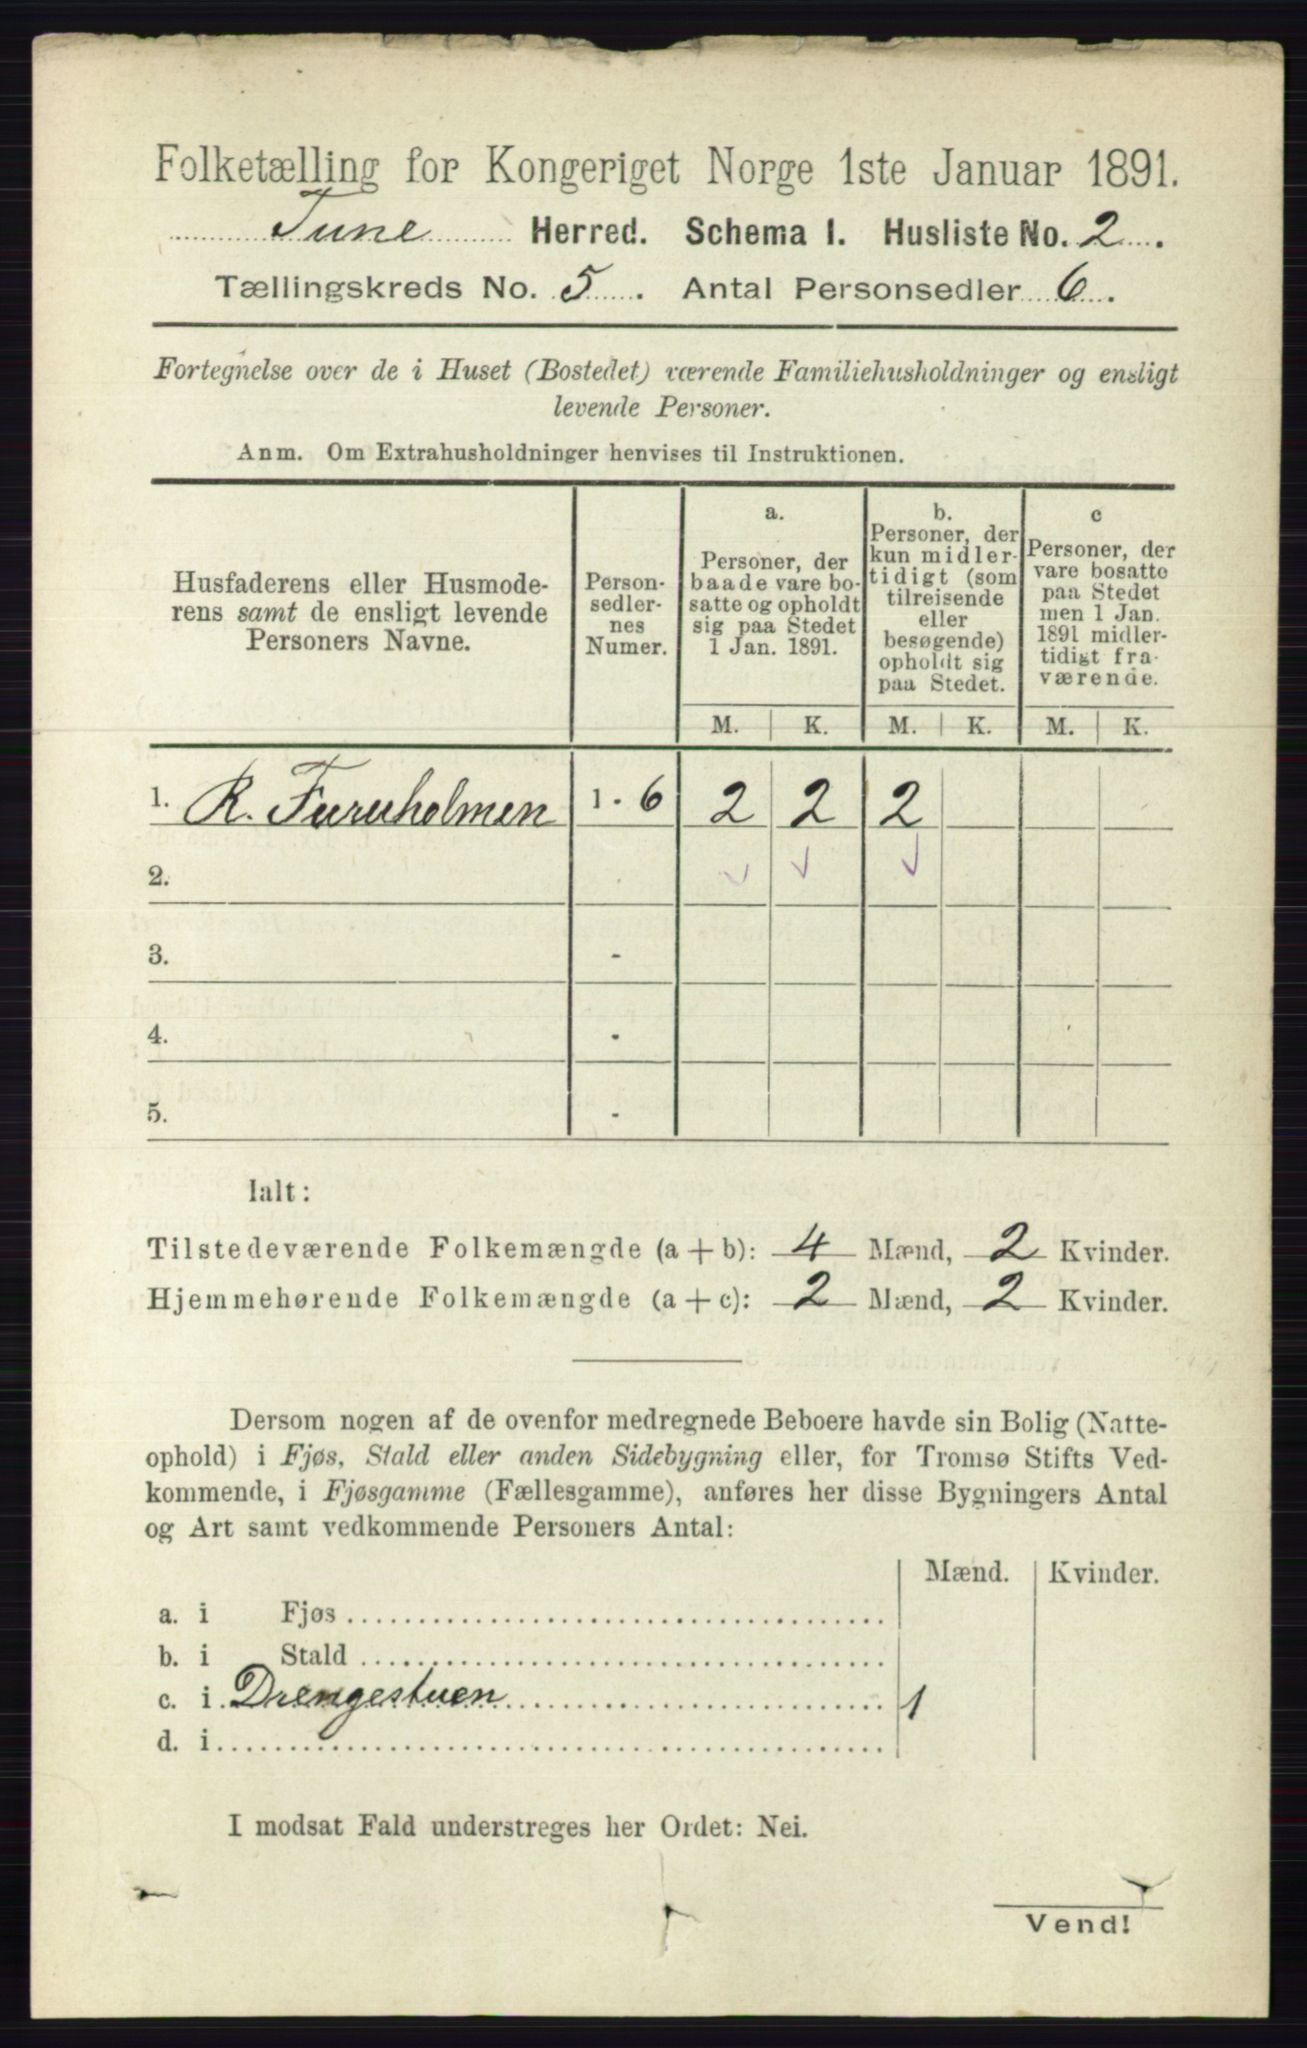 Folketælling for Kongeriget Norge 1ste Januar 1891.
Tune Herred. Schema I. Husliste No. 2.
Tællingskreds No. 5. Antal Personsedler 6.
Fortegnelse over de i Huset (Bostedet) værende Familiehusholdninger og ensligt
levende Personer.
Anm. Om Extrahusholdninger henvises til Instruktionen.
Husfaderens eller Husmode-
rens samt de ensligt levende
Personers Navne.
Person-
sedler-
nes
Numer.
a.
Personer, der
baade vare bo-
satte og opholdt
sig paa Stedet
1 Jan. 1891.
b.
Personer, der
kun midler-
tidigt (som
tilreisende
eller
besøgende)
opholdt sig
paa Stedet.
c
Personer, der
vare bosatte
paa Stedet
men 1 Jan.
1891 midler-
tidigt fra-
værende.
M. K. M. K. M. K.
1. R. Furuholmen 1 - 6 2 2 2
2.
3. -
4. -
5. -
Ialt:
Tilstedeværende Folkemængde (a + b): 4 Mænd, 2 Kvinder.
Hjemmehørende Folkemængde (a + c): 2 Mænd, 2 Kvinder.
Dersom nogen af de ovenfor medregnede Beboere havde sin Bolig (Natte-
ophold) i Fjøs, Stald eller anden Sidebygning eller, for Tromsø Stifts Ved-
kommende, i Fjøsgamme (Fællesgamme), anføres her disse Bygningers Antal
og Art samt vedkommende Personers Antal:
Mænd. Kvinder.
a. i Fjøs
b. i Stald
c. i Drengestuen 1
d. i
I modsat Fald understreges her Ordet: Nei.
Vend!